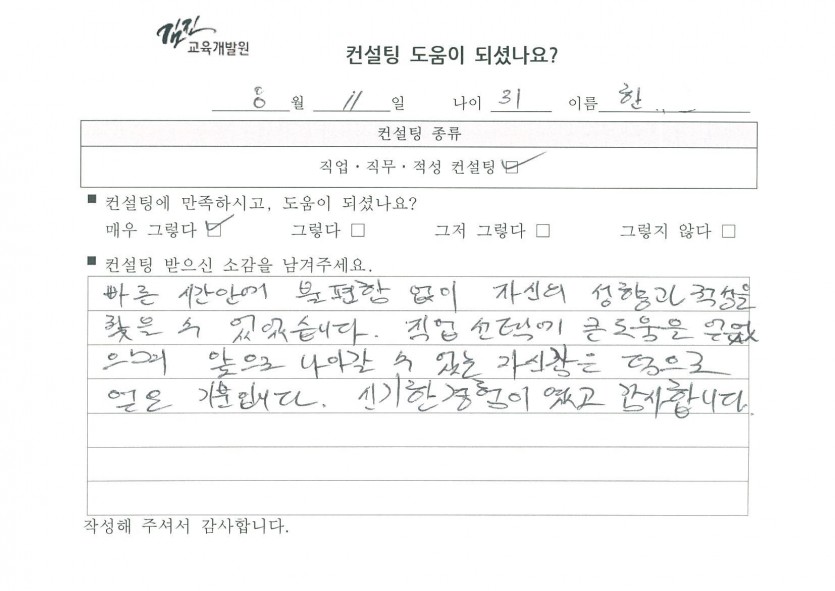 김진
교육개발원
컨설팅 도움이 되셨나요?
8 월 11 일 나이 31 이름 한
컨설팅 종류
직업·직무·적성 컨설팅 ☑
■ 컨설팅에 만족하시고, 도움이 되셨나요?
매우 그렇다 ☑ 그렇다 □ 그저 그렇다 □ 그렇지 않다 □
■ 컨설팅 받으신 소감을 남겨주세요.
빠른 시간안에 불편함 없이 자신의 성향과 적성을
찾을 수 있었습니다. 직업 선택에 큰 도움을 얻었
으며 앞으로 나아갈 수 있는 자신감은 덤으로
얻은 기분입니다. 신기한 경험이 였고 감사합니다.
작성해 주셔서 감사합니다.